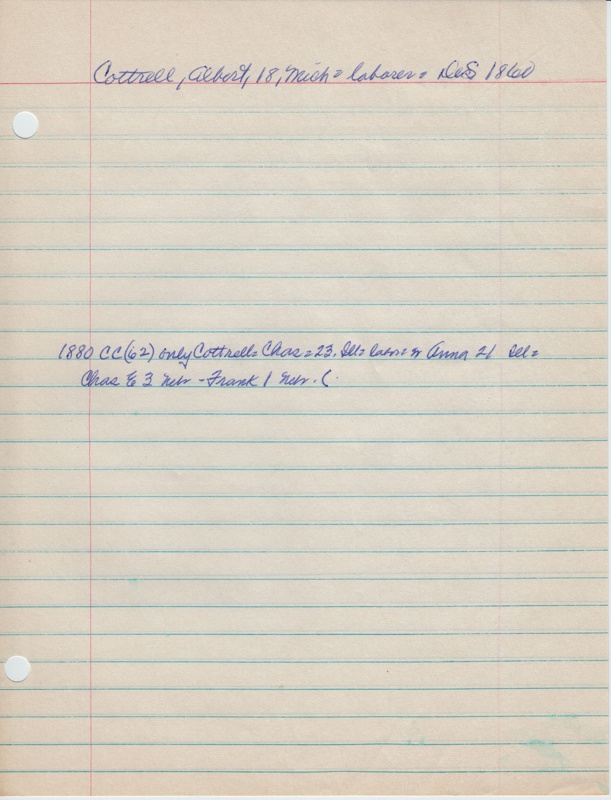 Cottrell, Albert, 18, Mich = laborer = DeS 1860
1880 CC (62) only Cottrell = Chas = 23. Ill = labor = w Anna 21 Ill =
Chas E 3 Nebr - Frank 1 Nebr. (